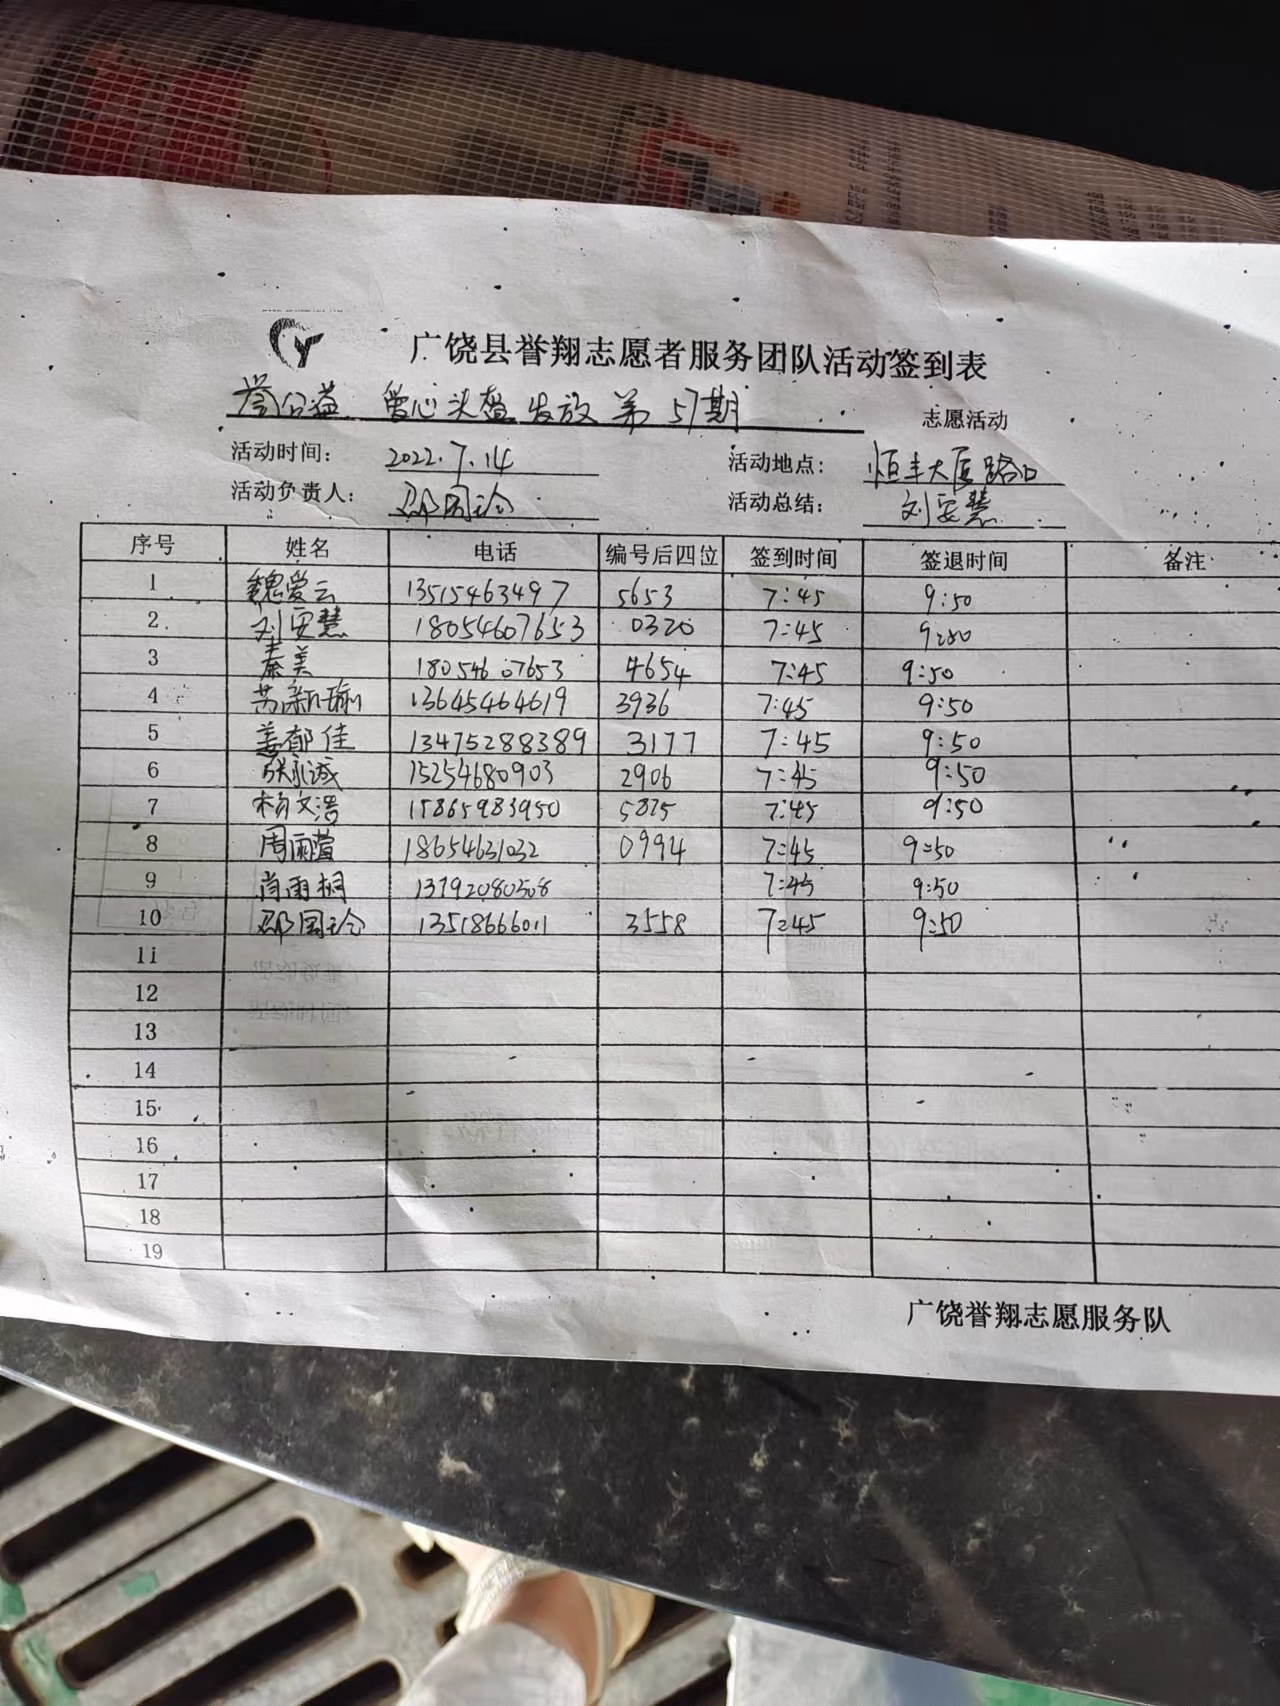 广饶县誉翔志愿者服务团队活动签到表
誉公益 爱心头盔发放第57期 志愿活动
活动时间: 2022.7.14 活动地点: 恒丰大厦路口
活动负责人: 邵国玲 活动总结: 刘安慧
序号 姓名 电话 编号后四位 签到时间 签退时间 备注
1 魏爱云 13515463497 5653 7:45 9:50
2 刘安慧 18054607653 0320 7:45 9:50
3 秦美 18054607653 4654 7:45 9:50
4 苏新瑜 13645464619 3936 7:45 9:50
5 姜郁佳 13475288389 3177 7:45 9:50
6 张永诚 15254680903 2906 7:45 9:50
7 杨文浩 15865983950 5875 7:45 9:50
8 周雨萱 18654631032 0994 7:45 9:50
9 肖雨桐 13792080508 7:45 9:50
10 邵国玲 13518666011 3558 7:45 9:50
11
12
13
14
15
16
17
18
19
广饶誉翔志愿服务队